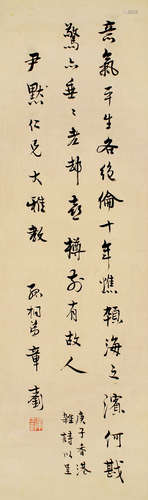 意氣平生各絕倫十年憔顇海之濱何戡
驚亦垂〻老却喜樽前有故人
庚子香港
雜詩以呈
尹默仁兄大雅教
孤桐弟章釗